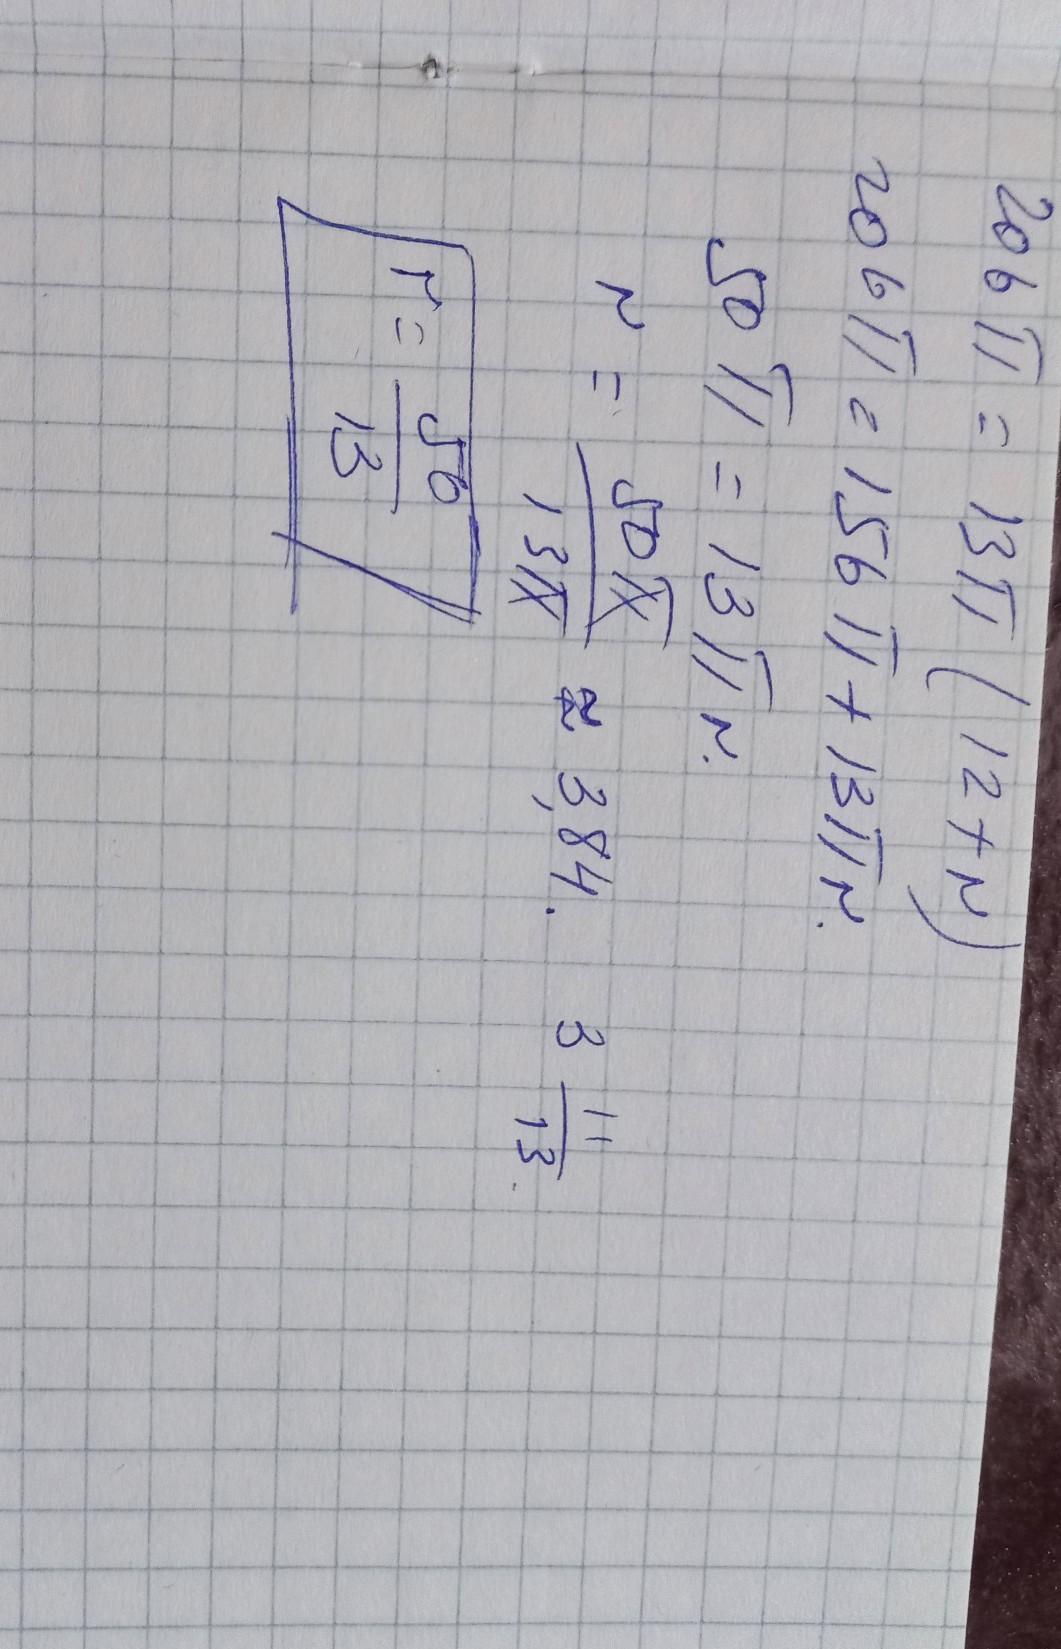 206π = 13π (12+r)
206π = 156π + 13πr.
50π = 13πr.
r = 50π/13π ≈ 3,84. 3 11/13.
r = 50/13